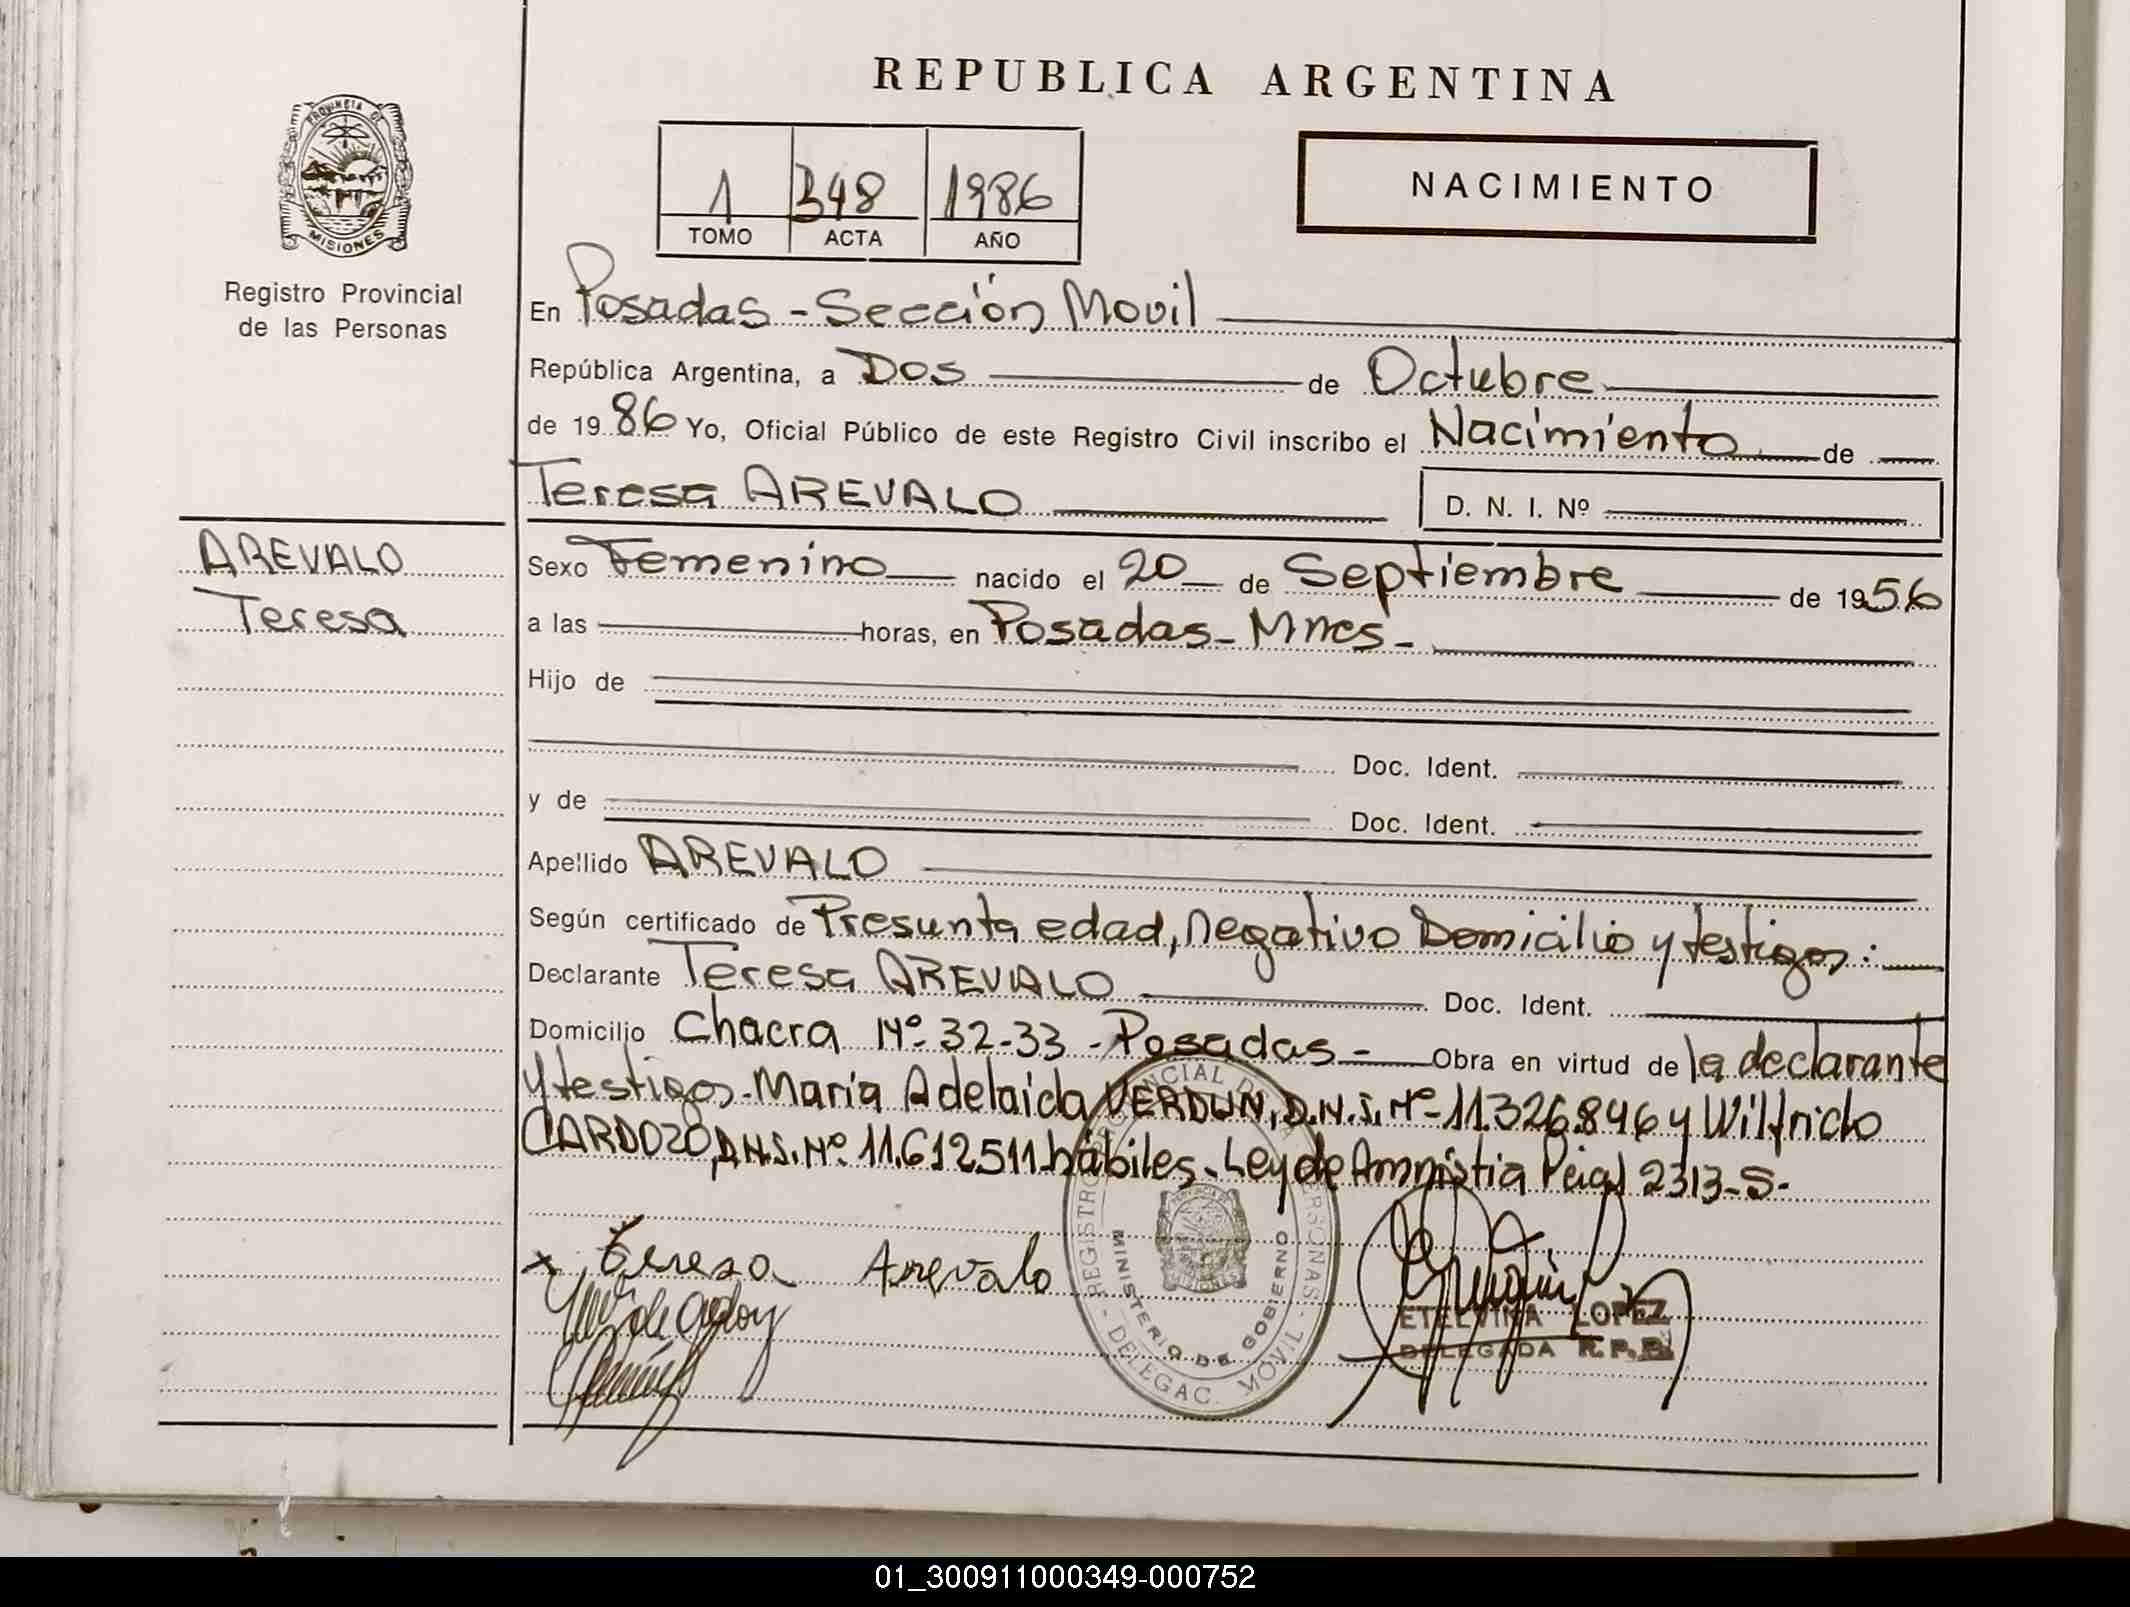 REPUBLICA ARGENTINA
PROVINCIA DE
MISIONES
Registro Provincial
de las Personas
1 348 1986
TOMO ACTA AÑO
NACIMIENTO
En Posadas - Sección Movil
República Argentina, a Dos de Octubre
de 1986 Yo, Oficial Público de este Registro Civil inscribo el Nacimiento de
Teresa AREVALO D. N. I. Nº
AREVALO
Teresa
Sexo Femenino nacido el 20 de Septiembre de 1956
a las horas, en Posadas - Mnes -
Hijo de
Doc. Ident.
y de Doc. Ident.
Apellido AREVALO
Según certificado de Presunta edad, negativo Domicilio y testigos:
Declarante Teresa AREVALO Doc. Ident.
Domicilio Chacra Nº 32-33 - Posadas - Obra en virtud de la declarante
y testigos - María Adelaida VERDUN, D.N.I. Nº 11.326.846 y Wilfrido
CARDOZO, D.N.I. Nº 11.612.511 hábiles - Ley de Amnistia 2313-S-
x Teresa Arevalo
REGISTRO PROVINCIAL DE LAS PERSONAS - DELEGAC. MOVIL -
MINISTERIO DE GOBIERNO
ETELVINA LOPEZ
DELEGADA R.P.P.
01_300911000349-000752